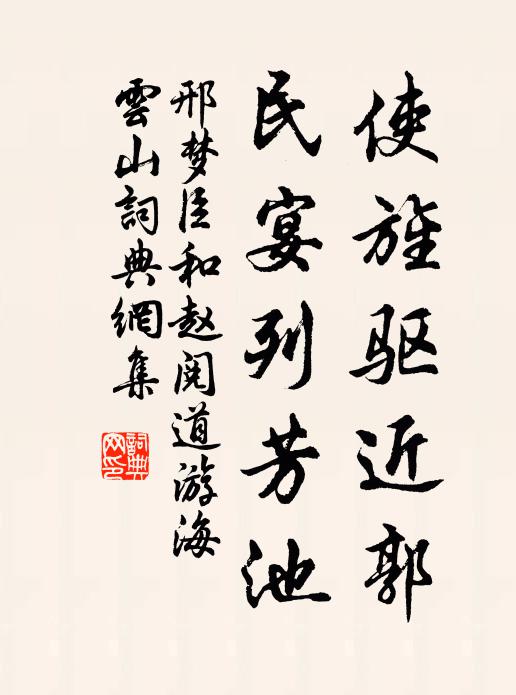 使旌驱近郭
民宴列芳池
邢梦臣和赵阅道游海
雲山詞典網集
詞典
网印